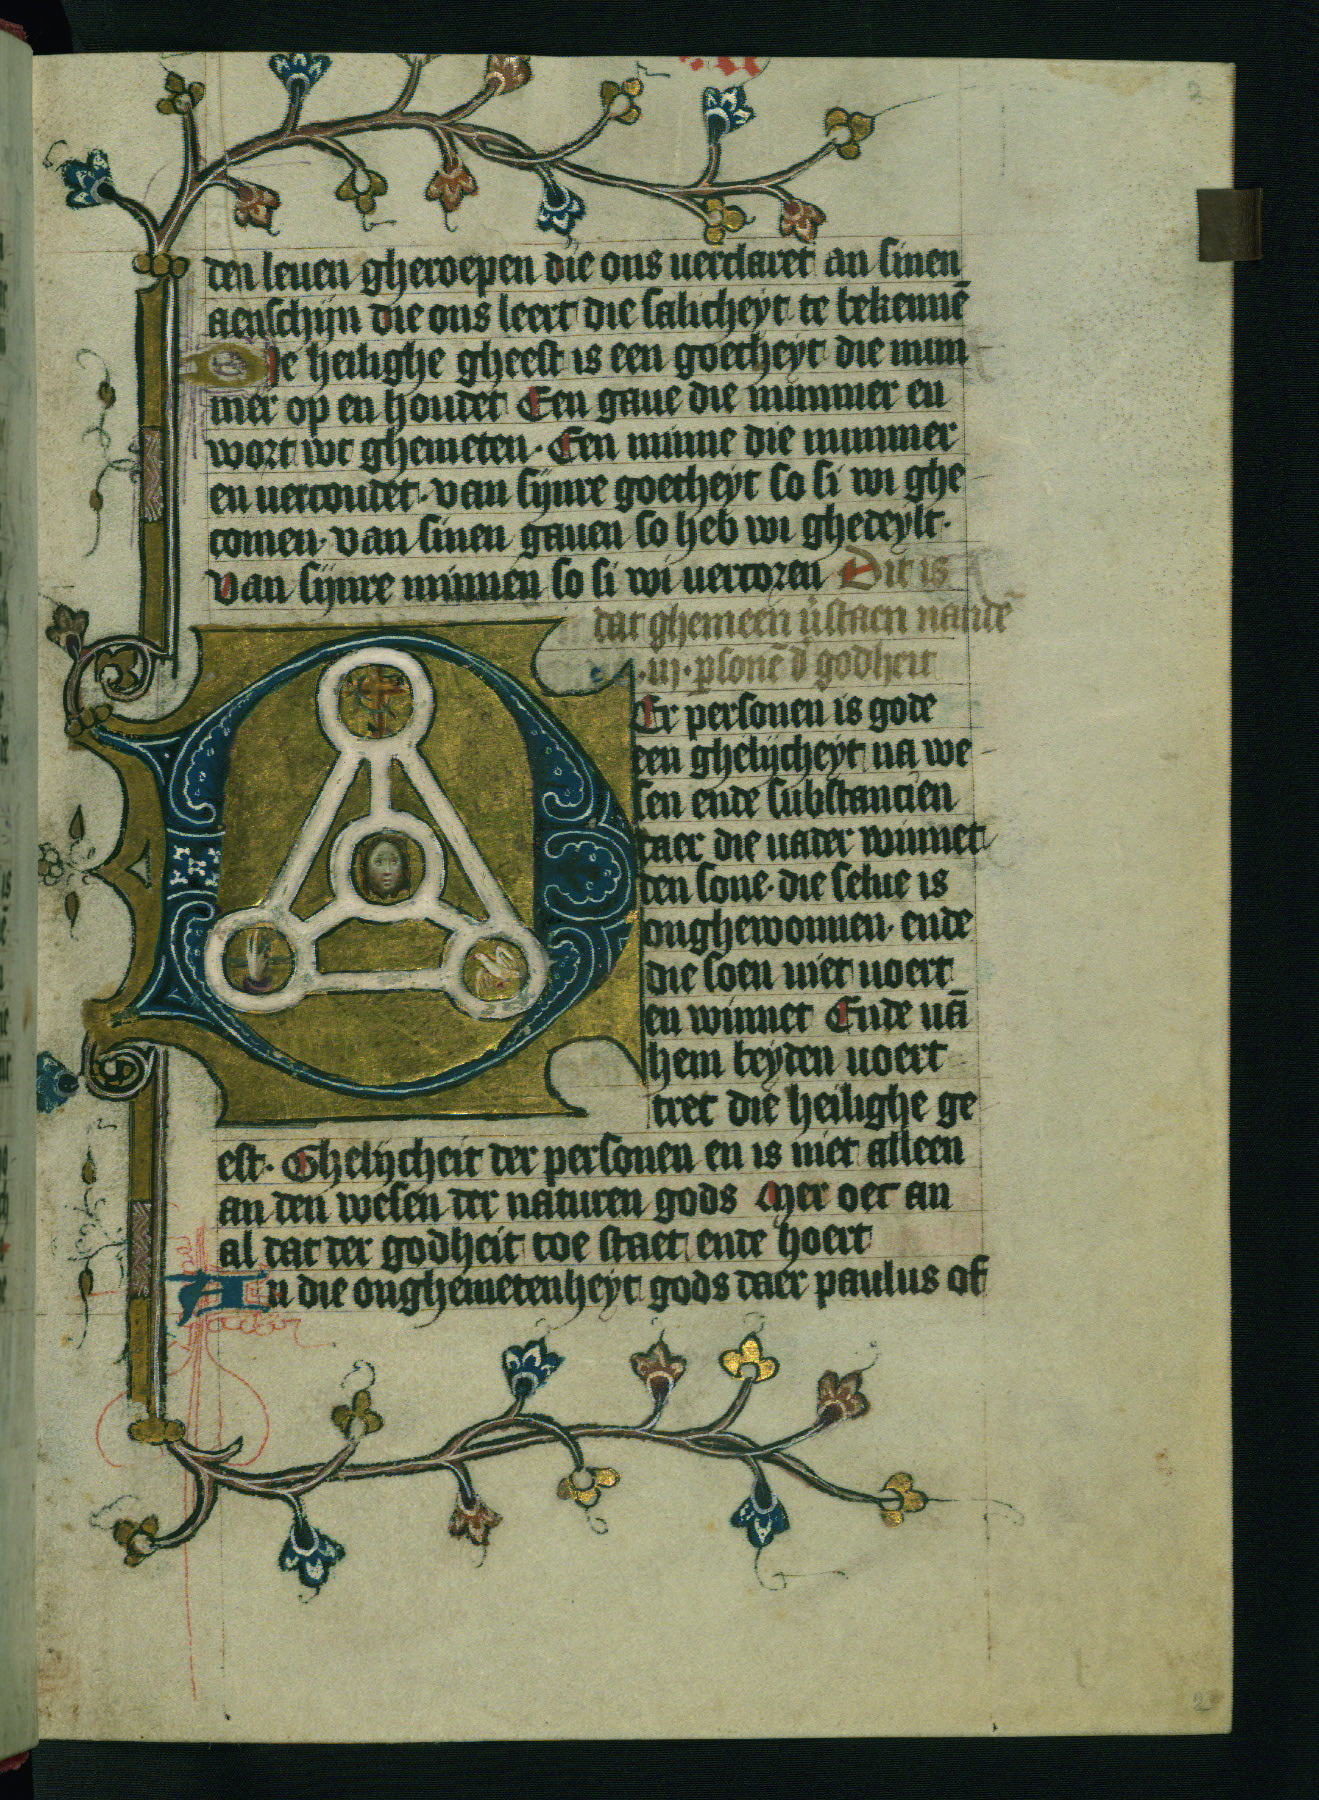 den leuen gheroepen die ons uerclaret an sinen
aenschijn die ons leert die salicheyt te bekennē
De heilighe gheest is een goetheyt die num
mer op en houdet Een gaue die nummer en
wort wt ghemeten · Een minne die nummer
en uercoudet · van sijnre goetheyt so si wi ghe
comen · van sinen gauen so heb wi ghedeylt ·
Van sijnre minnen so si wi uercoren Dit is
dat ghemeen v̄staen van dē
·iii· p̱sonē d̄ godheit
Der personen is gode
een ghelijcheyt na we
sen ende substancien
daer die uader winnet
den sone · die selue is
onghewonnen · ende
die soen niet uoert
en winnet Ende uā
hem beyden uoert
tret die heilighe ge
est · Ghelijcheit der personen en is niet alleen
an den wesen der naturen gods Mer oec an
al dat der godheit toe staet ende hoert
An die onghemetenheyt gods daer paulus of
2
2